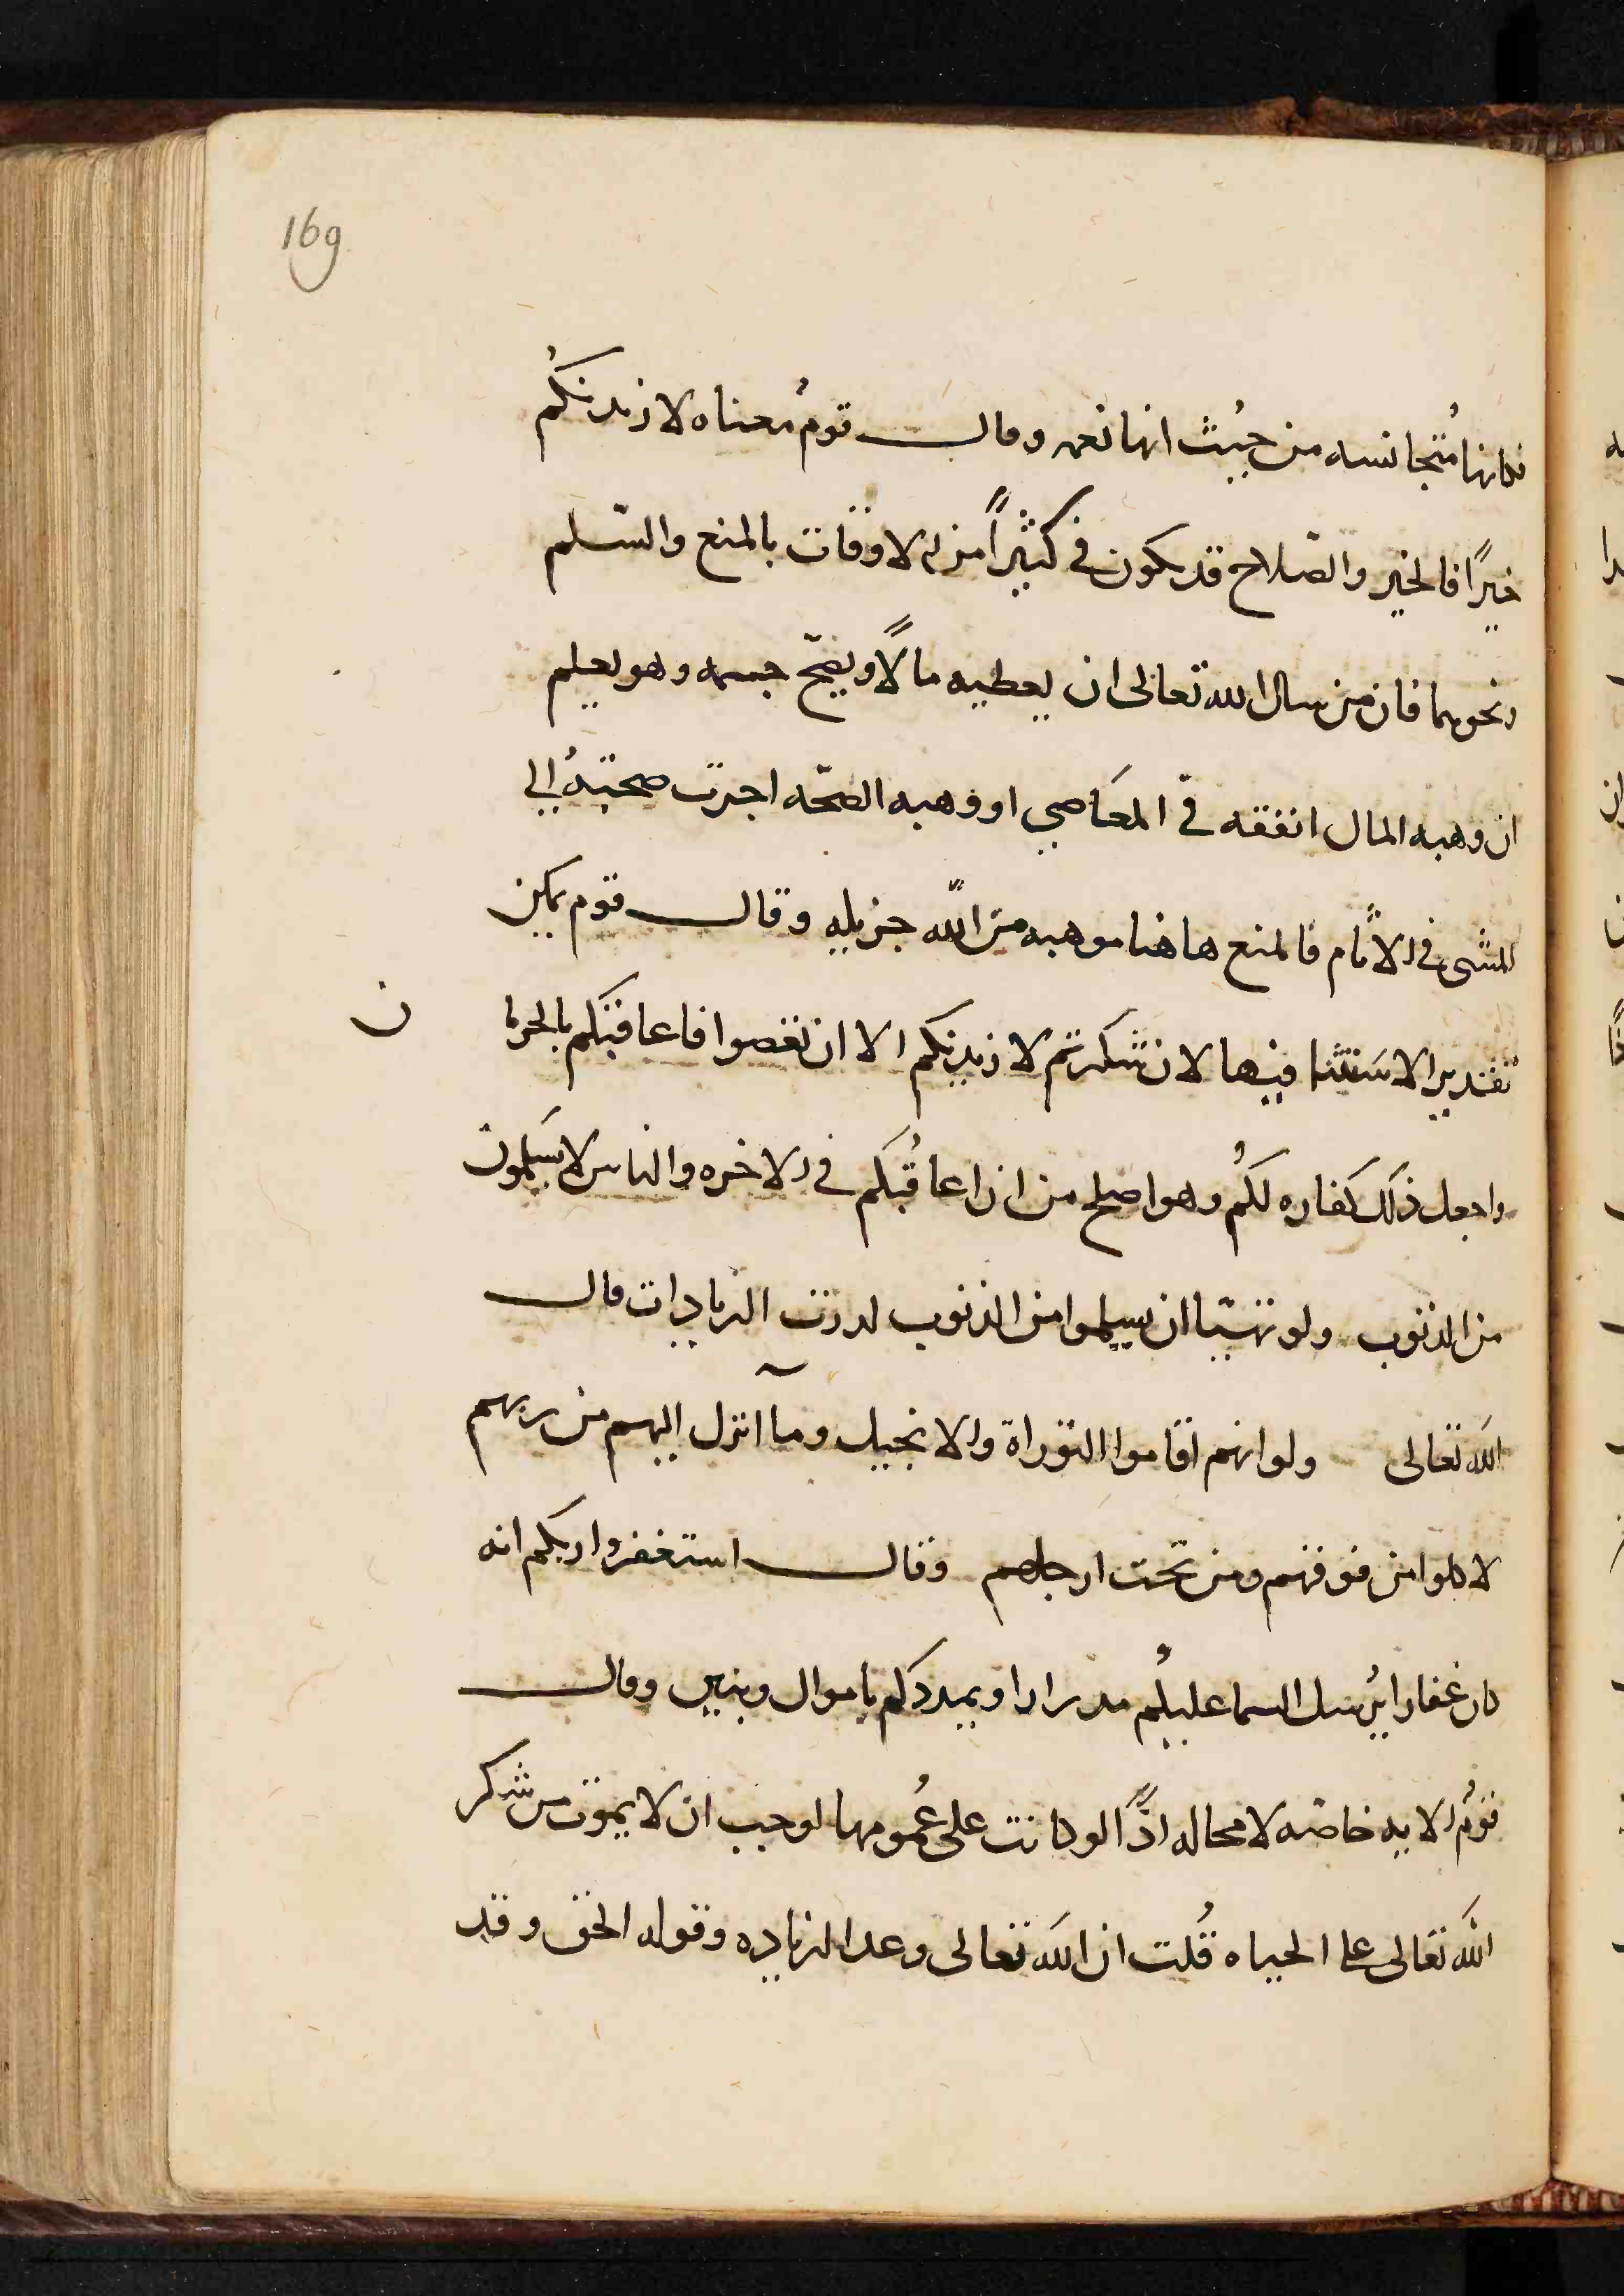 169
فكانها مُتجانسه من حيُث انها نعمه وقال قومُ معناه لازيدنكُم
خيرًا فالخير والصّلاح قد يكون في كثيرًا من الاوقات بالمنع والسّلم
ونحوهما فان من سال الله تعالى ان يعطيه مالًا ويصحّ جسمه وهو يعلم
ان وهبه المال انفقه في المعَاصي او وهبه الصّحه اجرت صحتهُ الي
المشي في الاثام فالمنع هاهنا موهبه من اللّه جزيله وقال قوم يمكن
تقدير الاسَتثنا فيها لان شكرتم لازيدنكم الا ان تغصوا فاعاقبَكم بالحرما
ن
واجعل ذلَك كفاره لكُم وهو اصلح من ان اعاقُبَكم في الاخره والناس لا يسَلمون
من الذنوب ولو تهيّا ان يسلموا من الذنوب لدرت الزيادات قال
اللَه تعالى ولو انهم اقاموا التوراة والانجيل ومآ انزل اليهم من ربهم
لاكلوا من فوقهم ومن تحت ارجلهم وقال استغفروا ربكم انه
كان غفارا يُرسل السما عليكُم مدرارا ويمددَكم باموال وبنين وقال
قومُ الايه خاصّه لا محاله اذًا لو كانت على عُمومها لوجب ان لا يموت من شكر
اللَه تعالى على الحياه قُلت ان اللَه تعالى وعد الزياده وقوله الحق وقد